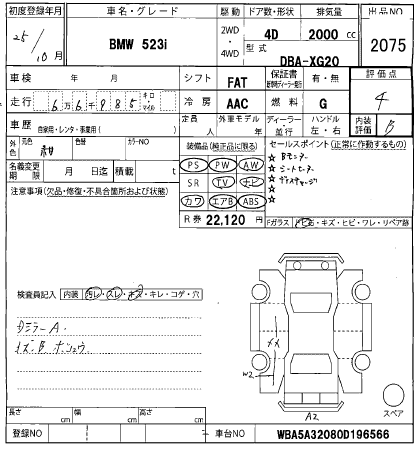 初度登録年月 車名・グレード 駆動 ドア数・形状 排気量 出品NO
25/10月 BMW 523i 2WD・4WD 4D 2000 cc 2075
型式 DBA-XG20
車検 年 月 シフト FAT 保証書 有・無 評価点
走行 6万6千985 キロ・マイル 冷房 AAC 燃料 G 4
車歴 自家用・レンタ・事業用( ) 定員 人 外車モデル 年 ディーラー・並行 ハンドル 左・右 内装評価 B
外色 元色 紺 色替 カラーNO 装備品(純正品に限る) セールスポイント(正常に動作するもの)
PS PW AW ☆ Bモニター
名義変更期限 月 日迄 積載 t SR TV ナビ ☆ シートヒーター
注意事項(欠品・修復・不具合箇所および状態) カワ エアB ABS ☆
☆
☆
R券 22,120 円 Fガラス キズ・ヒビ・ワレ・リペア跡
検査員記入 内装 汚レ・スレ・キズ・キレ・コゲ・穴
ミラーA.
W2
A2
スペア
長さ cm 幅 cm 高さ cm
登録NO 車台NO WBA5A32080D196566